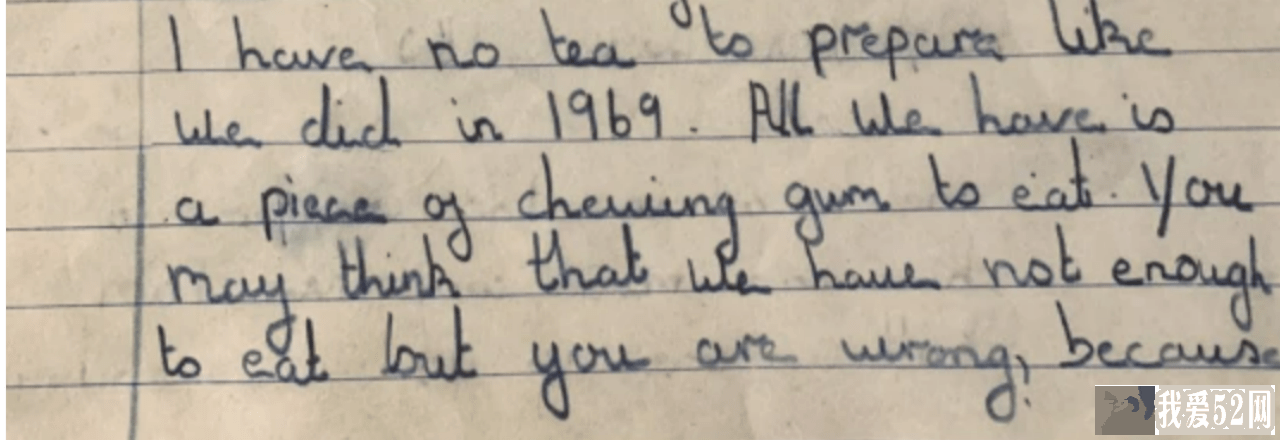 I have no tea to prepare like
we did in 1969. All we have is
a piece of chewing gum to eat. You
may think that we have not enough
to eat but you are wrong, because
我爱52网